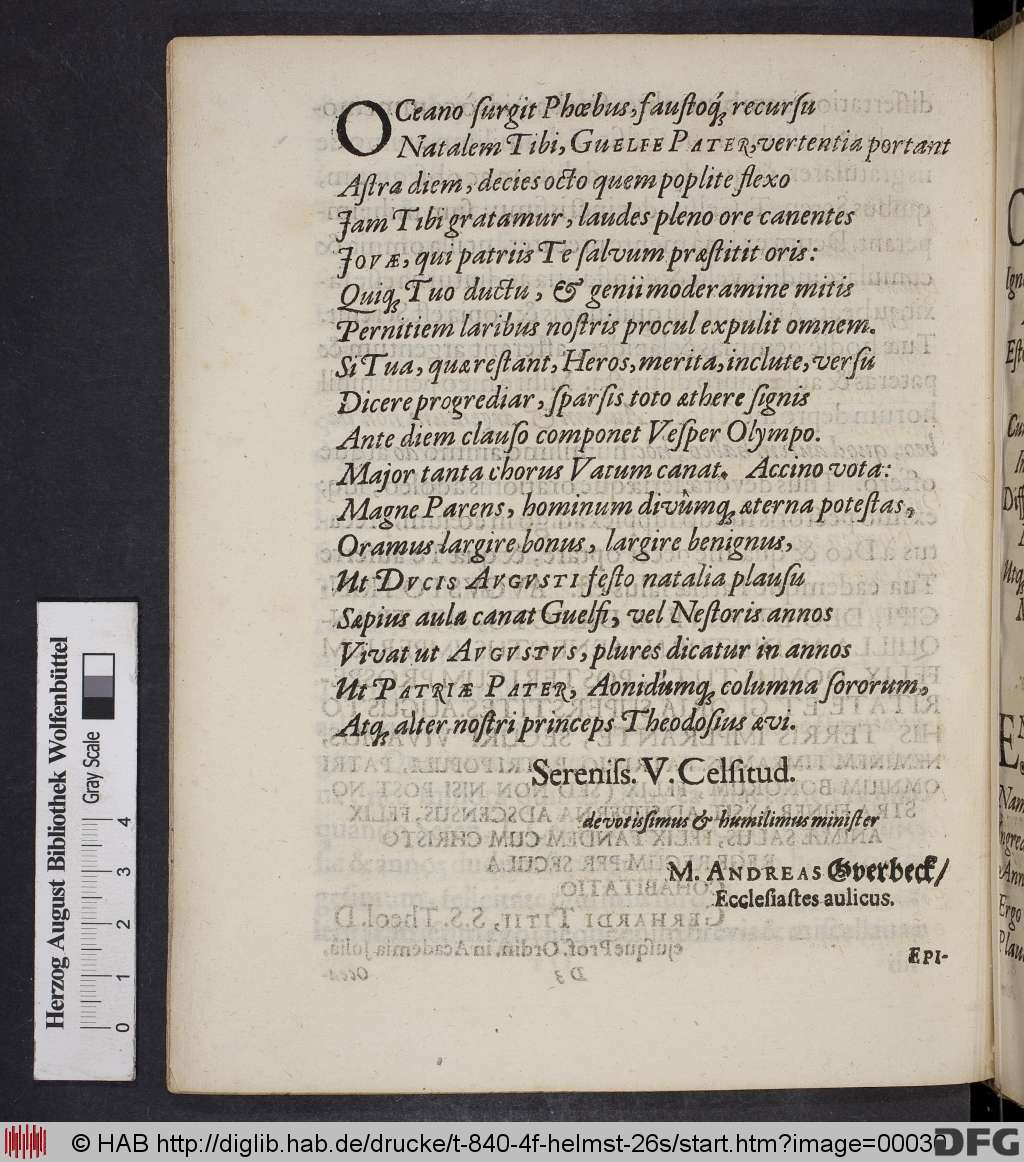 OCeano ſurgit Phœbus, fauſtoq́; recurſu
Natalem Tibi, GUELFE PATER, vertentia portant
Aſtra diem, decies octo quem poplite flexo
Jam Tibi gratamur, laudes pleno ore canentes
JOVÆ, qui patriis Te ſalvum præſtitit oris:
Quiq; Tuo ductu, & genii moderamine mitis
Pernitiem laribus noſtris procul expulit omnem.
Si Tua, quæ reſtant, Heros, merita, inclute, verſu
Dicere progrediar, ſparſis toto æthere ſignis
Ante diem clauſo componet Veſper Olympo.
Major tanta chorus Vatum canat. Accino vota:
Magne Parens, hominum divûmq; æterna poteſtas,
Oramus largire bonus, largire benignus,
Ut DVCIS AVGVSTI feſto natalia plauſu
Sæpius aula canat Guelfi, vel Neſtoris annos
Vivat ut AVGVSTVS, plures dicatur in annos
Ut PATRIÆ PATER, Aonidumq; columna ſororum,
Atq; alter noſtri princeps Theodoſius ævi.
Sereniſs. V. Celſitud.
devotiſſimus & humilimus miniſter
M. ANDREAS Overbeck/
Eccleſiaſtes aulicus.
EPI-
Ign
Herzog August Bibliothek Wolfenbüttel
Gray Scale
0 1 2 3 4
© HAB http://diglib.hab.de/drucke/t-840-4f-helmst-26s/start.htm?image=00030
DFG